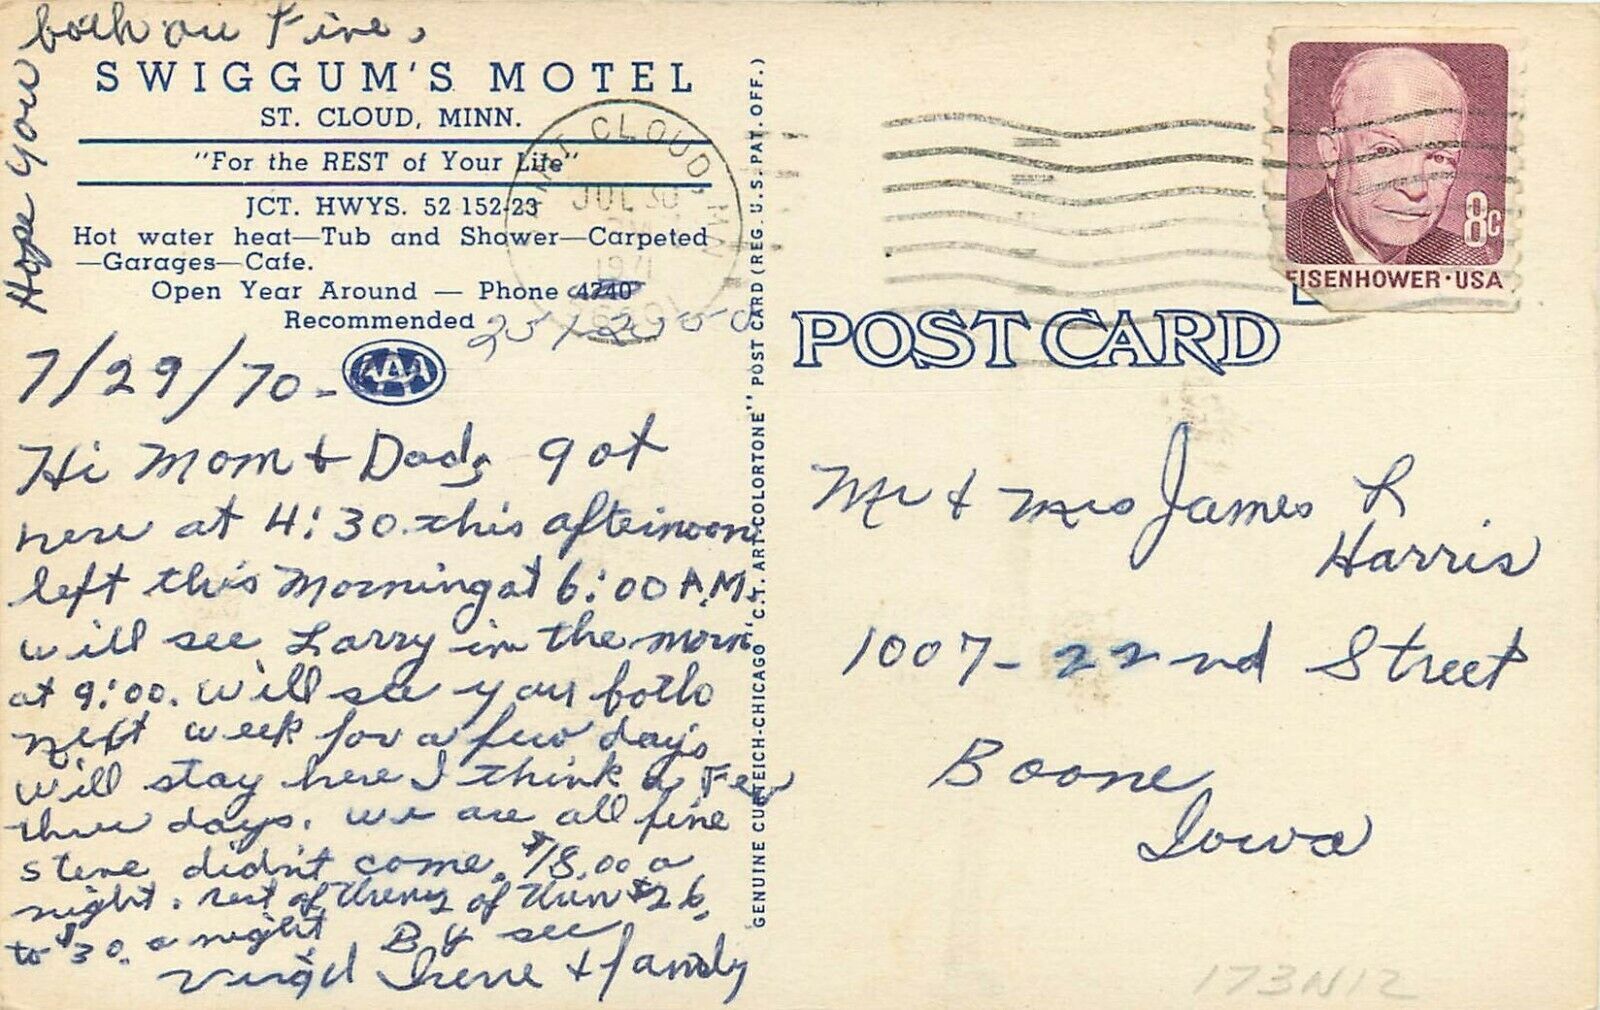 Hope you
both are Fine,
SWIGGUM'S MOTEL
ST. CLOUD, MINN.
"For the REST of Your Life"
JCT. HWYS. 52 152-23
Hot water heat—Tub and Shower—Carpeted
—Garages—Cafe.
Open Year Around — Phone 4240
Recommended
AAA
7/29/70-
Hi Mom & Dad, got
here at 4:30 this afternoon
left this Morning at 6:00 A.M.
will see Larry in the morn
at 9:00. Will see you both
next week for a few days
will stay here I think a Few
three days. we are all fine
Steve didn't come. $18.00 a
night. rest of them $26.
to $30. a night. By see
Virgil Irene & family
GENUINE CURTEICH-CHICAGO "C.T. ART-COLORTONE" POST CARD (REG. U.S. PAT. OFF.)
SAINT CLOUD, MN
JUL 30
1971
8c
EISENHOWER·USA
POST CARD
Mr & Mrs James R.
Harris
1007-22nd Street
Boone,
Iowa
173N12